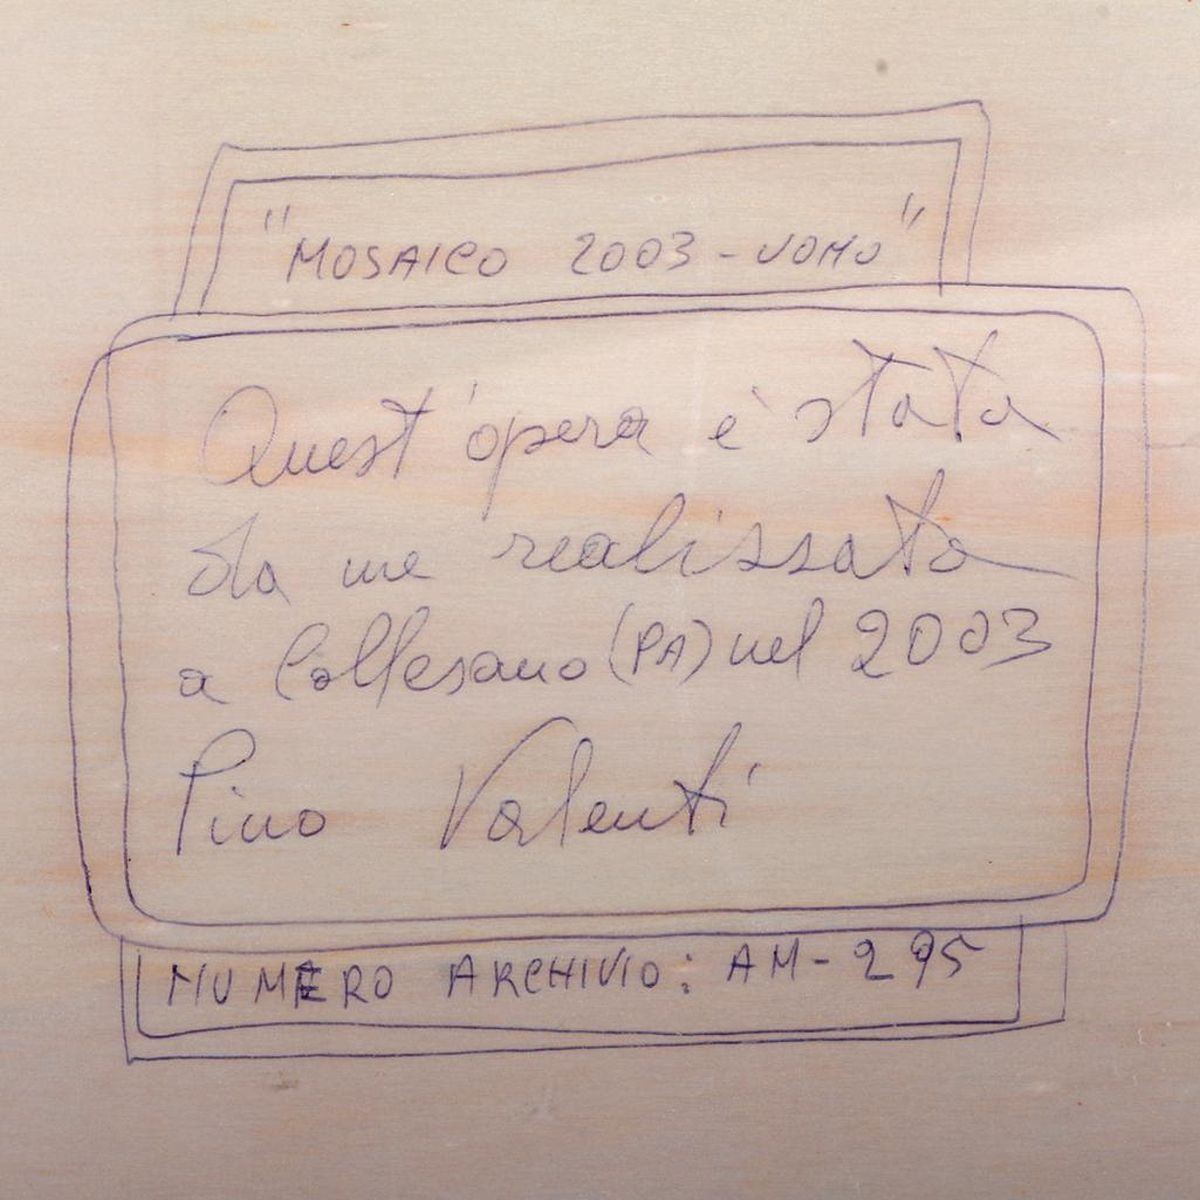 "MOSAICO 2003 - UOMO"
Quest'opera è stata
da me realizzata
a Collesano (PA) nel 2003
Pino Valenti
NUMERO ARCHIVIO: AM-295